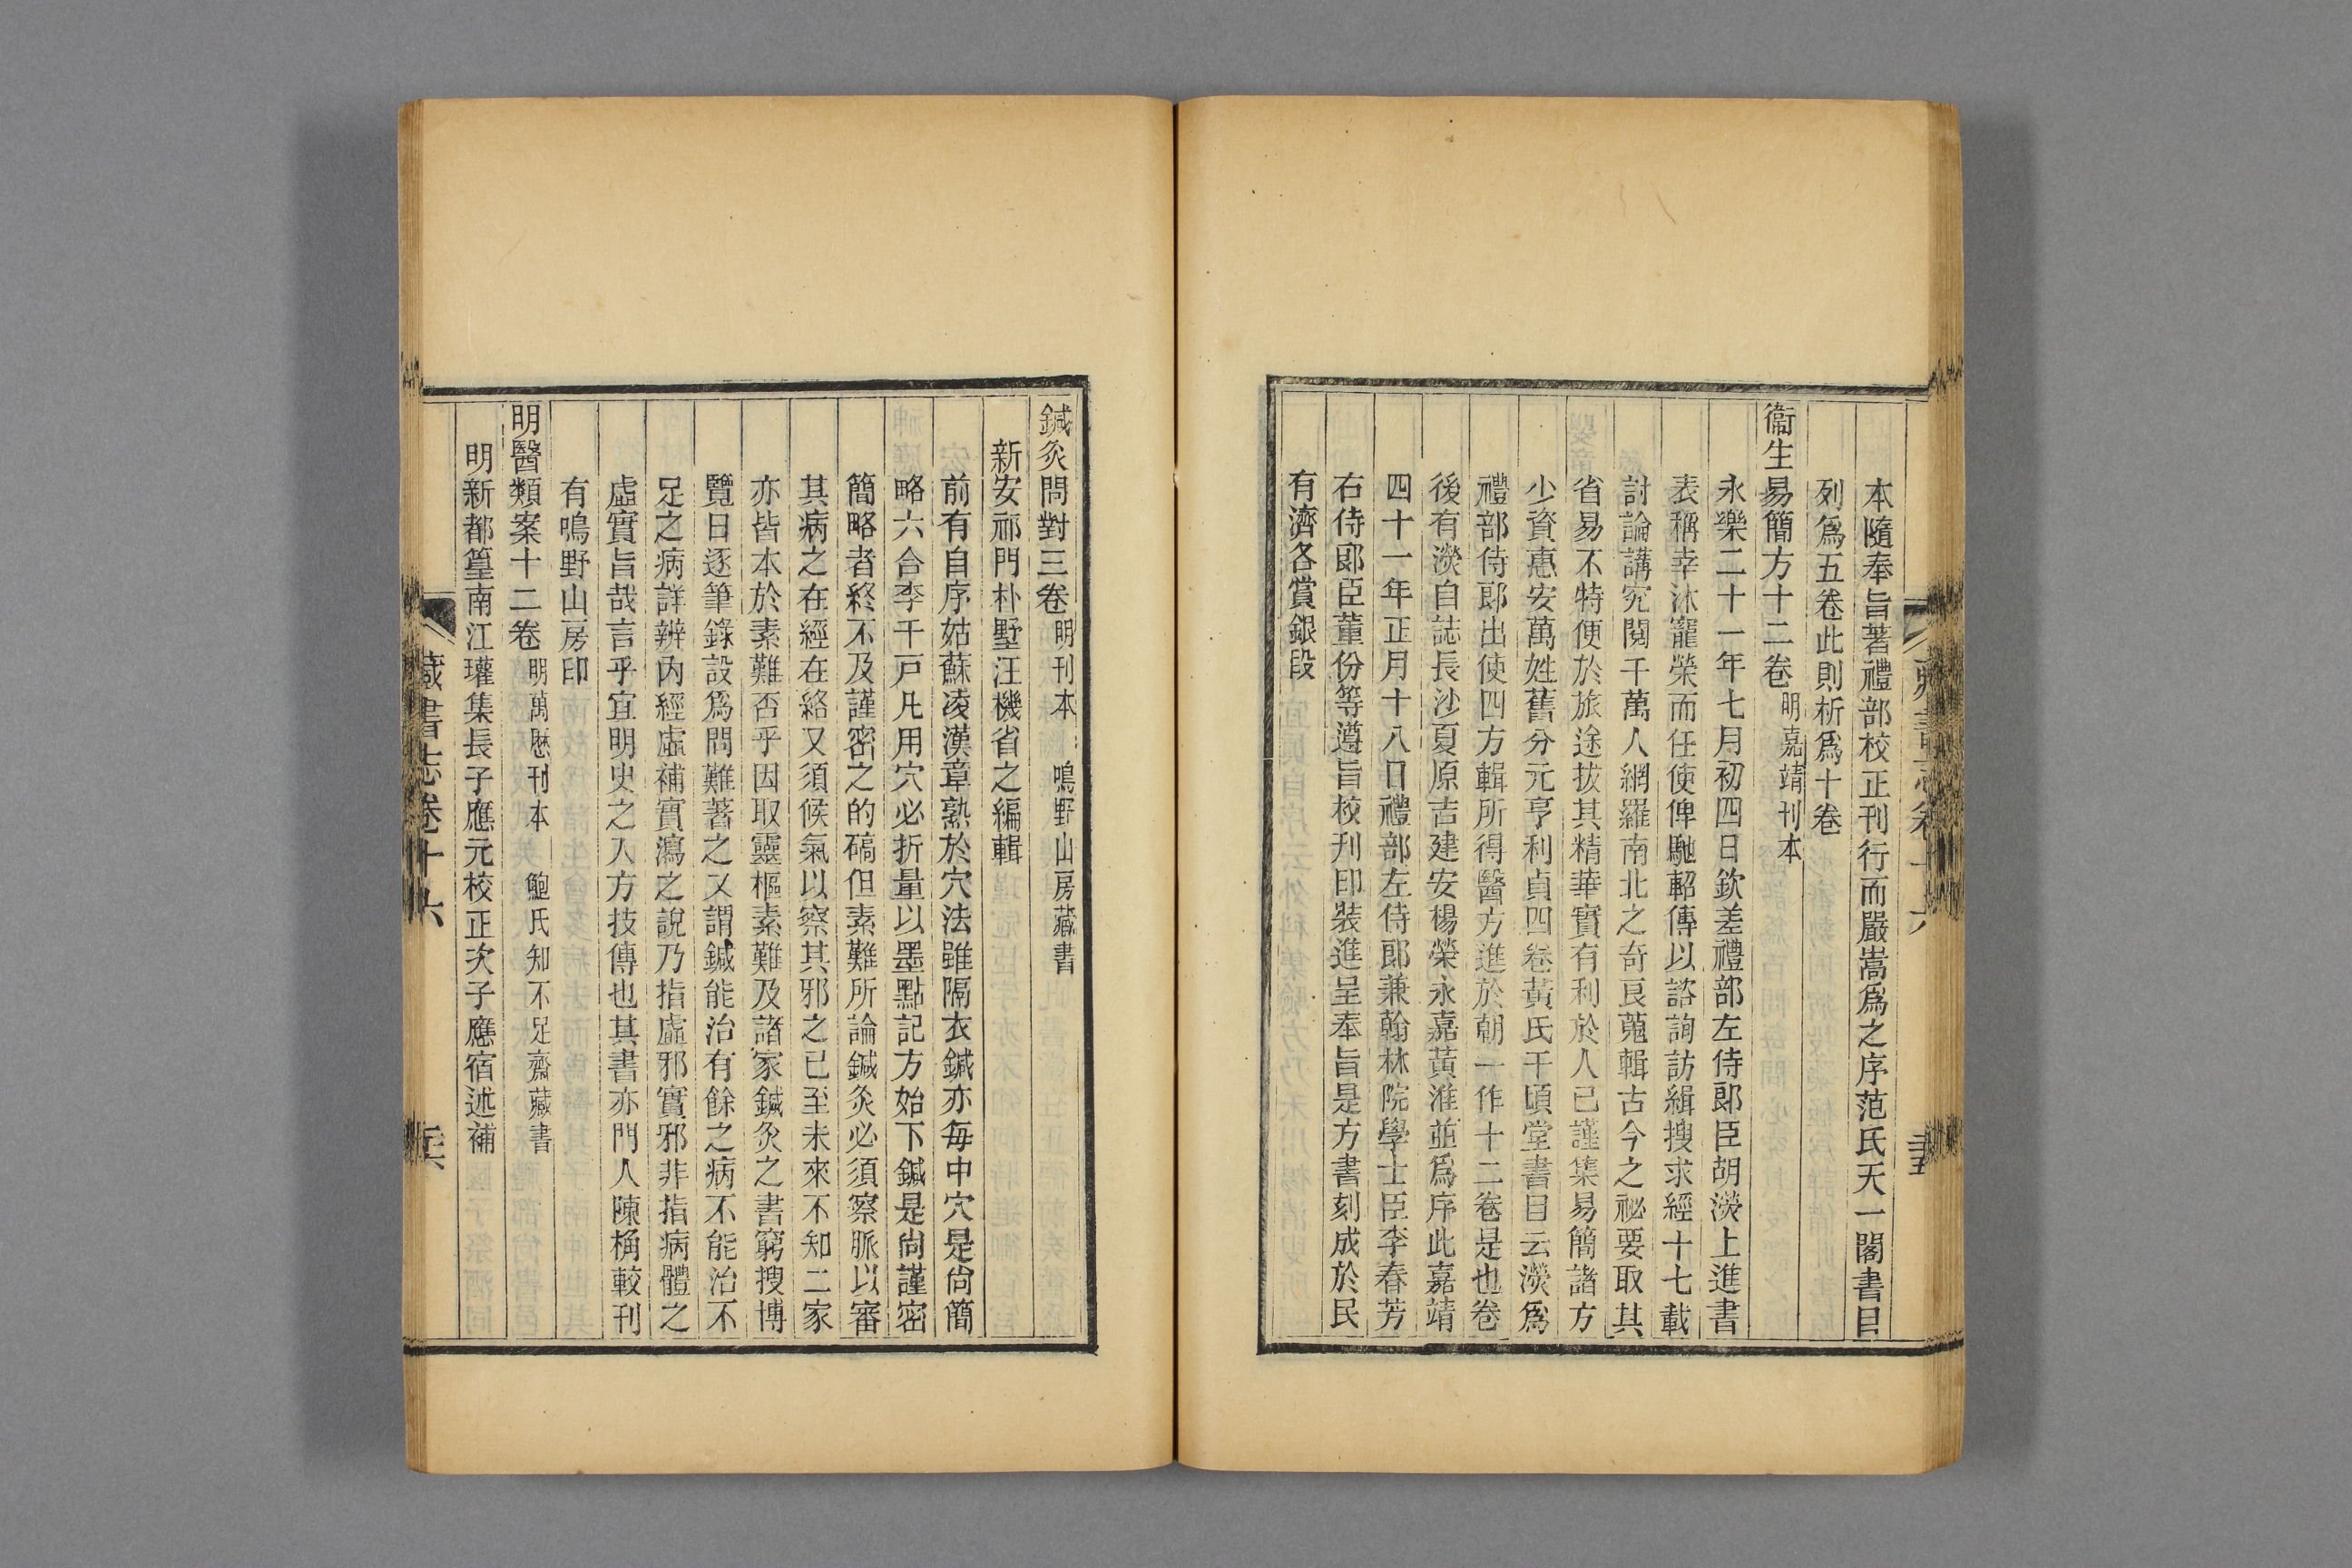 本隨奉旨著禮部校正刊行而嚴嵩爲之序范氏天一閣書目
列爲五卷此則析爲十卷
衞生易簡方十二卷明嘉靖刊本
永樂二十一年七月初四日欽差禮部左侍郎臣胡濙上進書
表稱幸沐寵榮而任使俾馳軺傳以諮詢訪緝搜求經十七載
討論講究閱千萬人網羅南北之奇良蒐輯古今之祕要取其
省易不特便於旅途拔其精華實有利於人已謹集易簡諸方
少資惠安萬姓舊分元亨利貞四卷黃氏千頃堂書目云濙爲
禮部侍郎出使四方輯所得醫方進於朝一作十二卷是也卷
後有濙自誌長沙夏原吉建安楊榮永嘉黃淮並爲序此嘉靖
四十一年正月十八日禮部左侍郎兼翰林院學士臣李春芳
右侍郎臣董份等遵旨校刊印裝進呈奉旨是方書刻成於民
有濟各賞銀段
鍼灸問對三卷明刊本 鳴野山房藏書
新安祁門朴墅汪機省之編輯
前有自序姑蘇凌漢章熟於穴法雖隔衣鍼亦每中穴是尙簡
略六合李千戸凡用穴必折量以墨點記方始下鍼是尙謹密
簡略者終不及謹密之的碻但素難所論鍼灸必須察脈以審
其病之在經在絡又須候氣以察其邪之已至未來不知二家
亦皆本於素難否乎因取靈樞素難及諸家鍼灸之書窮搜博
覽日逐筆錄設爲問難著之又謂鍼能治有餘之病不能治不
足之病詳辨內經虛補實瀉之說乃指虛邪實邪非指病體之
虛實旨哉言乎宜明史之入方技傳也其書亦門人陳桷較刊
有鳴野山房印
明醫類案十二卷明萬厯刊本 鮑氏知不足齋藏書
明新都篁南江瓘集長子應元校正次子應宿述補
藏書志卷十六